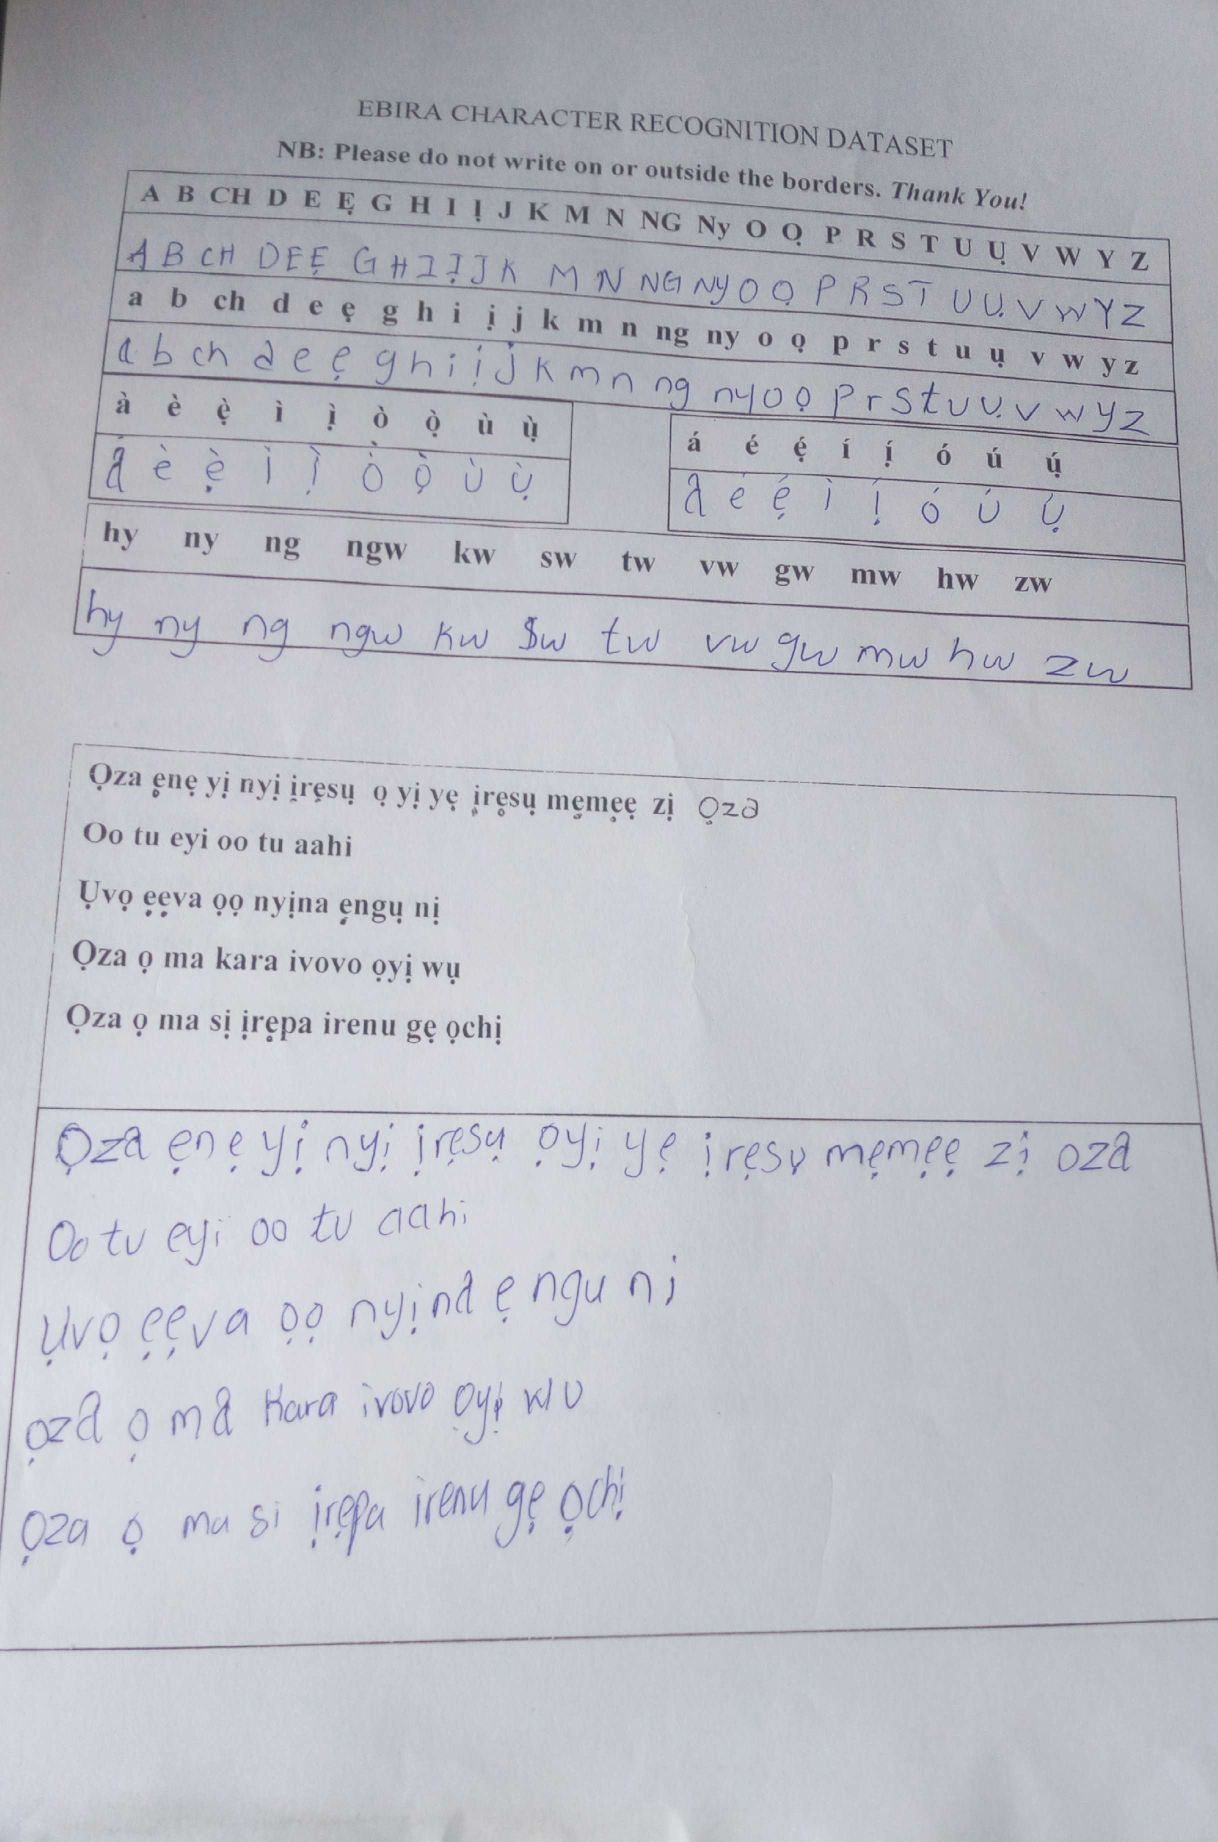 EBIRA CHARACTER RECOGNITION DATASET
NB: Please do not write on or outside the borders. Thank You!
A B CH D E Ẹ G H I Ị J K M N NG Ny O Ọ P R S T U Ụ V W Y Z
A B CH D E Ẹ G H I Ị J K M N NG Ny O Ọ P R S T U Ụ V W Y Z
a b ch d e ẹ g h i ị j k m n ng ny o ọ p r s t u ụ v w y z
a b ch d e ẹ g h i ị j k m n ng ny o ọ p r s t u ụ v w y z
à è ẹ̀ ì ị̀ ò ọ̀ ù ụ̀
à è ẹ̀ ì ị̀ ò ọ̀ ù ụ̀
á é ẹ́ í ị́ ó ú ụ́
á é ẹ́ ì ị́ ó ú ụ́
hy ny ng ngw kw sw tw vw gw mw hw zw
hy ny ng ngw kw sw tw vw gw mw hw zw
Ọza ẹnẹ yị nyị ịrẹsụ ọ yị yẹ ịrẹsụ mẹmẹẹ zị Ọza
Oo tu eyi oo tu aahi
Ụvọ ẹẹva ọọ nyịna ẹngụ nị
Ọza ọ ma kara ivovo ọyị wụ
Ọza ọ ma sị ịrẹpa irenu gẹ ọchị
Ọza ẹnẹ yị nyị ịrẹsụ ọyị yẹ ịrẹsụ mẹmẹẹ zị oza
Oo tu eyi oo tu aahi
Ụvọ ẹẹva ọọ nyịna ẹ ngu nị
ọza ọ ma kara ivovo ọyị wu
Ọza ọ ma si ịrẹpa irenu gẹ ọchị